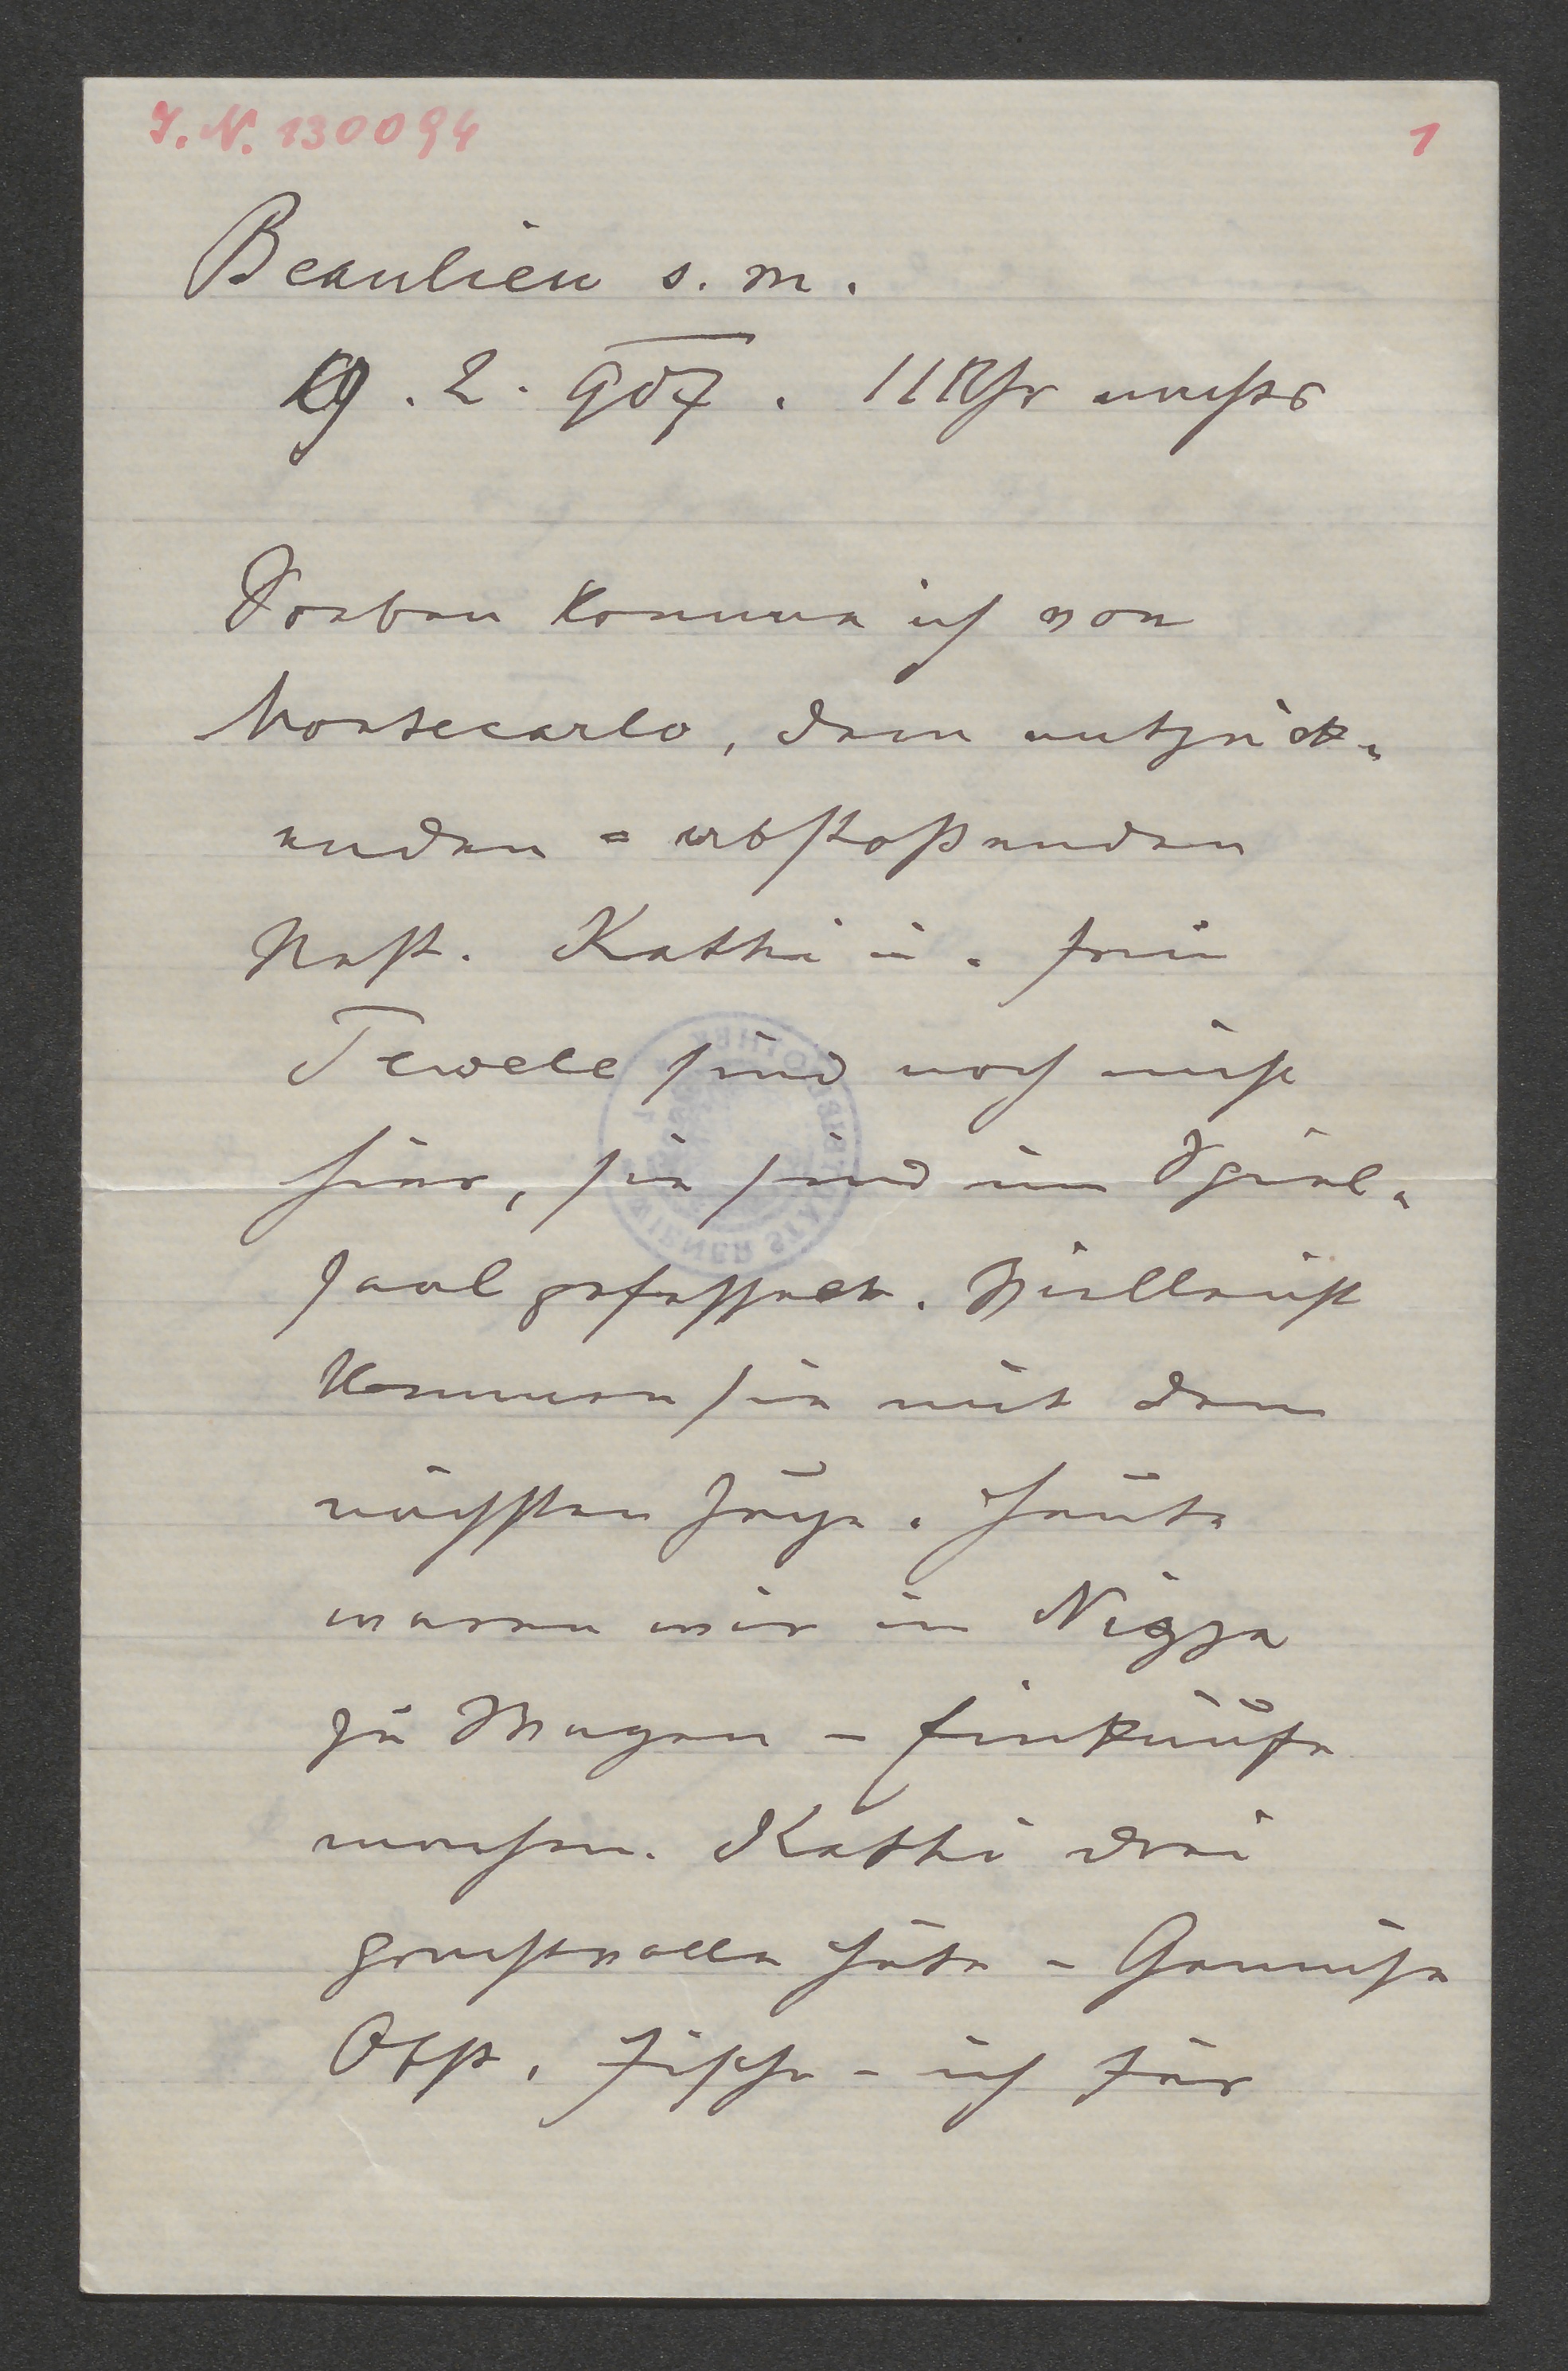 J. N. 130094
1
Beaulieu s. m.
19. 2. 907. 11 Uhr nachts
Soeben komme ich von
Montecarlo, dem entzück-
enden - abstoßenden
Nest. Kathi u. Frau
Tewele sind noch nicht
hier, sie sind im Spiel-
saal gesessen. Vielleicht
kommen sie mit dem
nächsten Zuge. Heute
waren wir in Nizza
zu Wagen - Einkäufe
machen. Kathi drei
prachtvolle Hüte - Gemüse
Obst, Fische - ich für
WIENER STADTBIBLIOTHEK